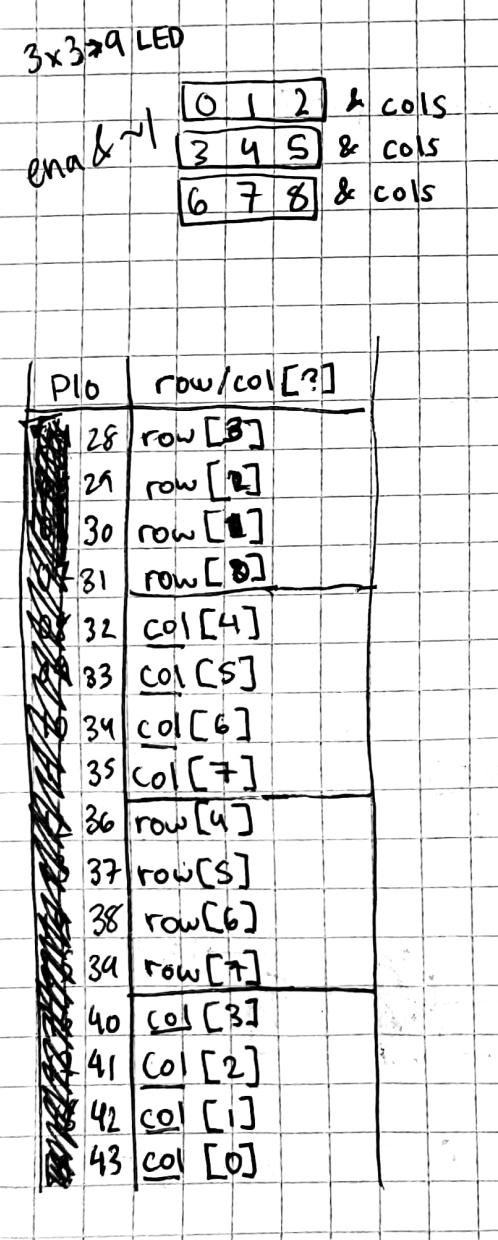 3x3→9 LED
0 1 2 & cols
ena & ~1 3 4 5 & cols
6 7 8 & cols
PIO row/col[?]
28 row[3]
29 row[2]
30 row[1]
31 row[0]
32 col[4]
33 col[5]
34 col[6]
35 col[7]
36 row[4]
37 row[5]
38 row[6]
39 row[7]
40 col[3]
41 col[2]
42 col[1]
43 col[0]